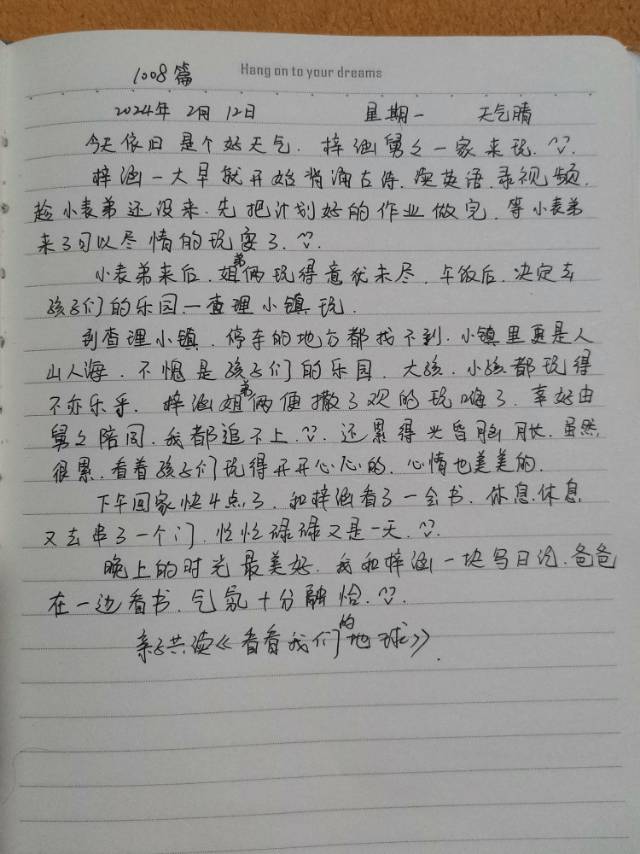 1008篇
Hang on to your dreams
2024年 2月 12日 星期一 天气晴
今天依旧是个好天气. 梓涵舅々一家来玩.
梓涵一大早就开始背诵古诗.读英语.录视频.
趁小表弟还没来.先把计划好的作业做完.等小表弟
来了可以尽情的玩耍了.
小表弟来后.姐弟俩玩得意犹未尽.午饭后.决定去
孩子们的乐园一查理小镇玩.
到查理小镇.停车的地方都找不到.小镇里更是人
山人海.不愧是孩子们的乐园.大孩.小孩都玩得
不亦乐乎.梓涵姐弟俩便撒了欢的玩嗨了.幸好由
舅々陪同.我都追不上.还累得头昏脑胀.虽然
很累.看着孩子们玩得开开心心的.心情也美美的.
下午回家快4点了.和梓涵看了一会书.休息.休息
又去串了一个门.忙忙碌碌又是一天.
晚上的时光最美好.我和梓涵一块写日记.爸爸
在一边看书.气氛十分融恰.
亲子共读《看看我们的地球》.